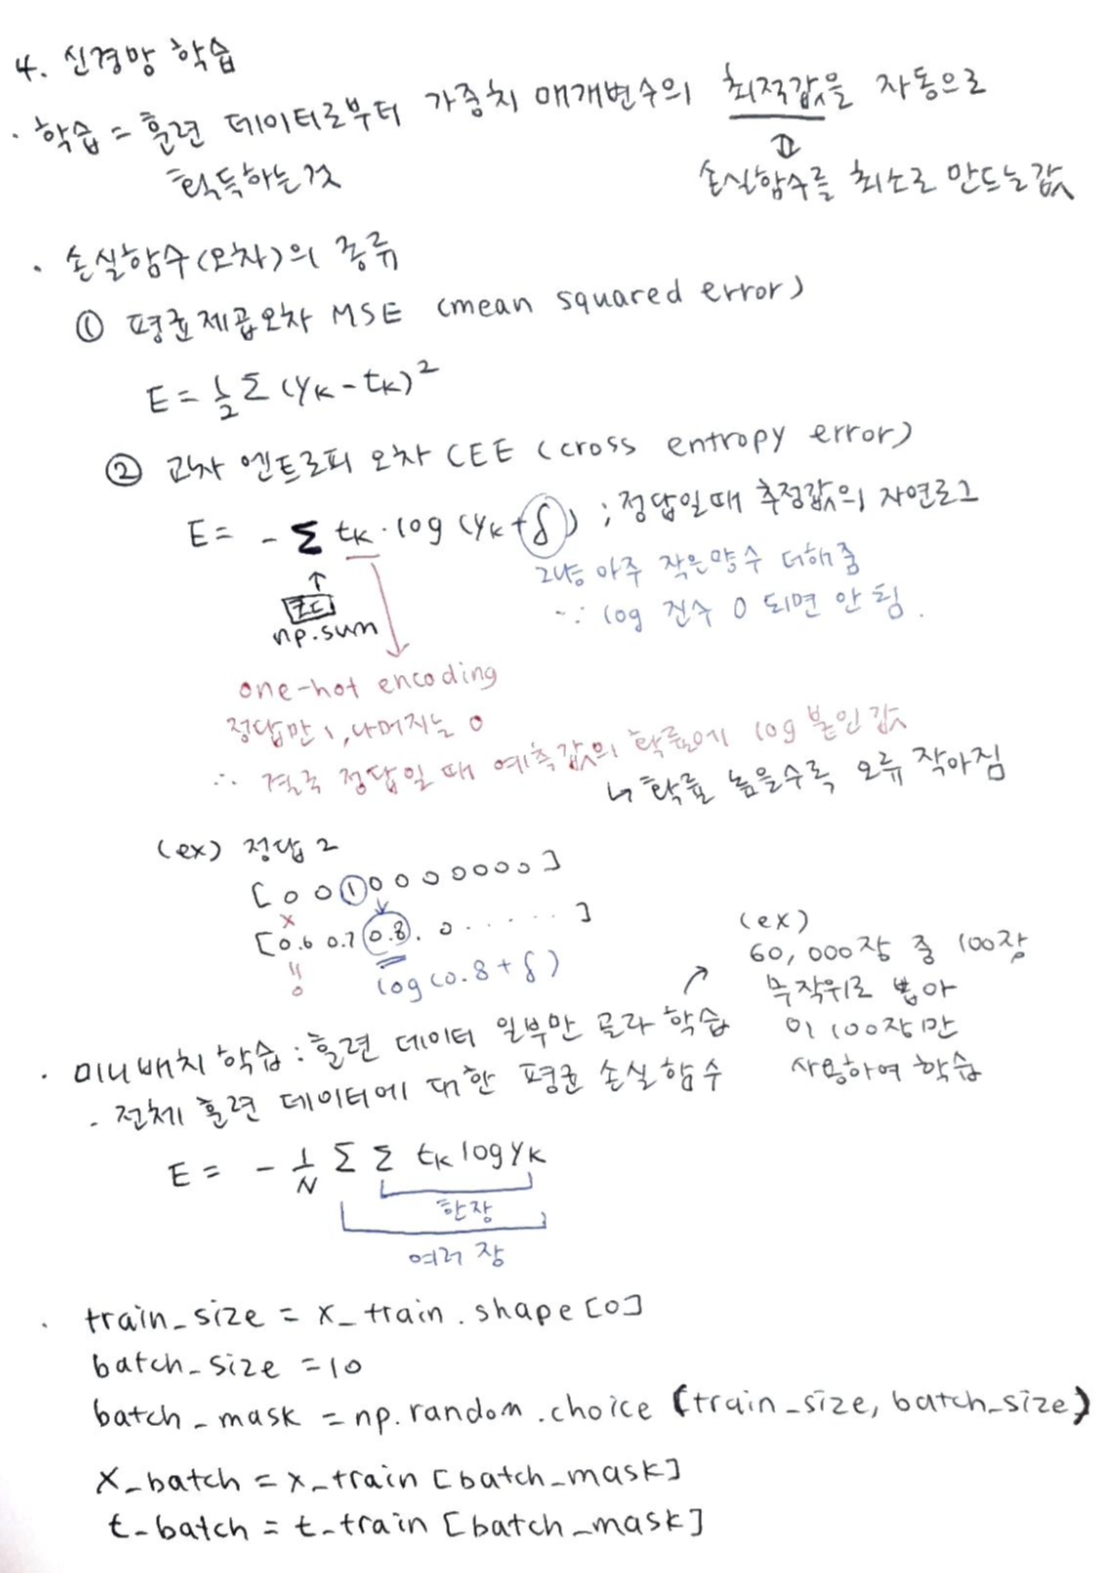 4. 신경망 학습
· 학습 = 훈련 데이터로부터 가중치 매개변수의 최적값을 자동으로
획득하는것
손실함수를 최소로 만드는값
· 손실함수(오차)의 종류
① 평균제곱오차 MSE (mean squared error)
E = 1/2 Σ (yk - tk)²
② 교차 엔트로피 오차 CEE (cross entropy error)
E = - Σ tk · log (yk + δ) ; 정답일때 추정값의 자연로그
그냥 아주 작은양수 더해줌
∵ log 진수 0 되면 안 됨.
↑
코드
np.sum
one-hot encoding
정답만 1, 나머지는 0
∴ 결국 정답일 때 예측값의 확률에 log 붙인 값
↳ 확률 높을수록 오류 작아짐
(ex) 정답 2
[0 0 1 0 0 0 0 0 0 0]
×
[0.6 0.7 0.8. 0 · · · · · · ]
0
log(0.8 + δ)
· 미니배치 학습 : 훈련 데이터 일부만 골라 학습
(ex)
60,000장 중 100장
무작위로 뽑아
이 100장만
사용하여 학습
· 전체 훈련 데이터에 대한 평균 손실 함수
E = - 1/N Σ Σ tk log yk
한장
여러 장
· train_size = x_train.shape[0]
batch_size = 10
batch_mask = np.random.choice (train_size, batch_size)
x_batch = x_train [batch_mask]
t_batch = t_train [batch_mask]